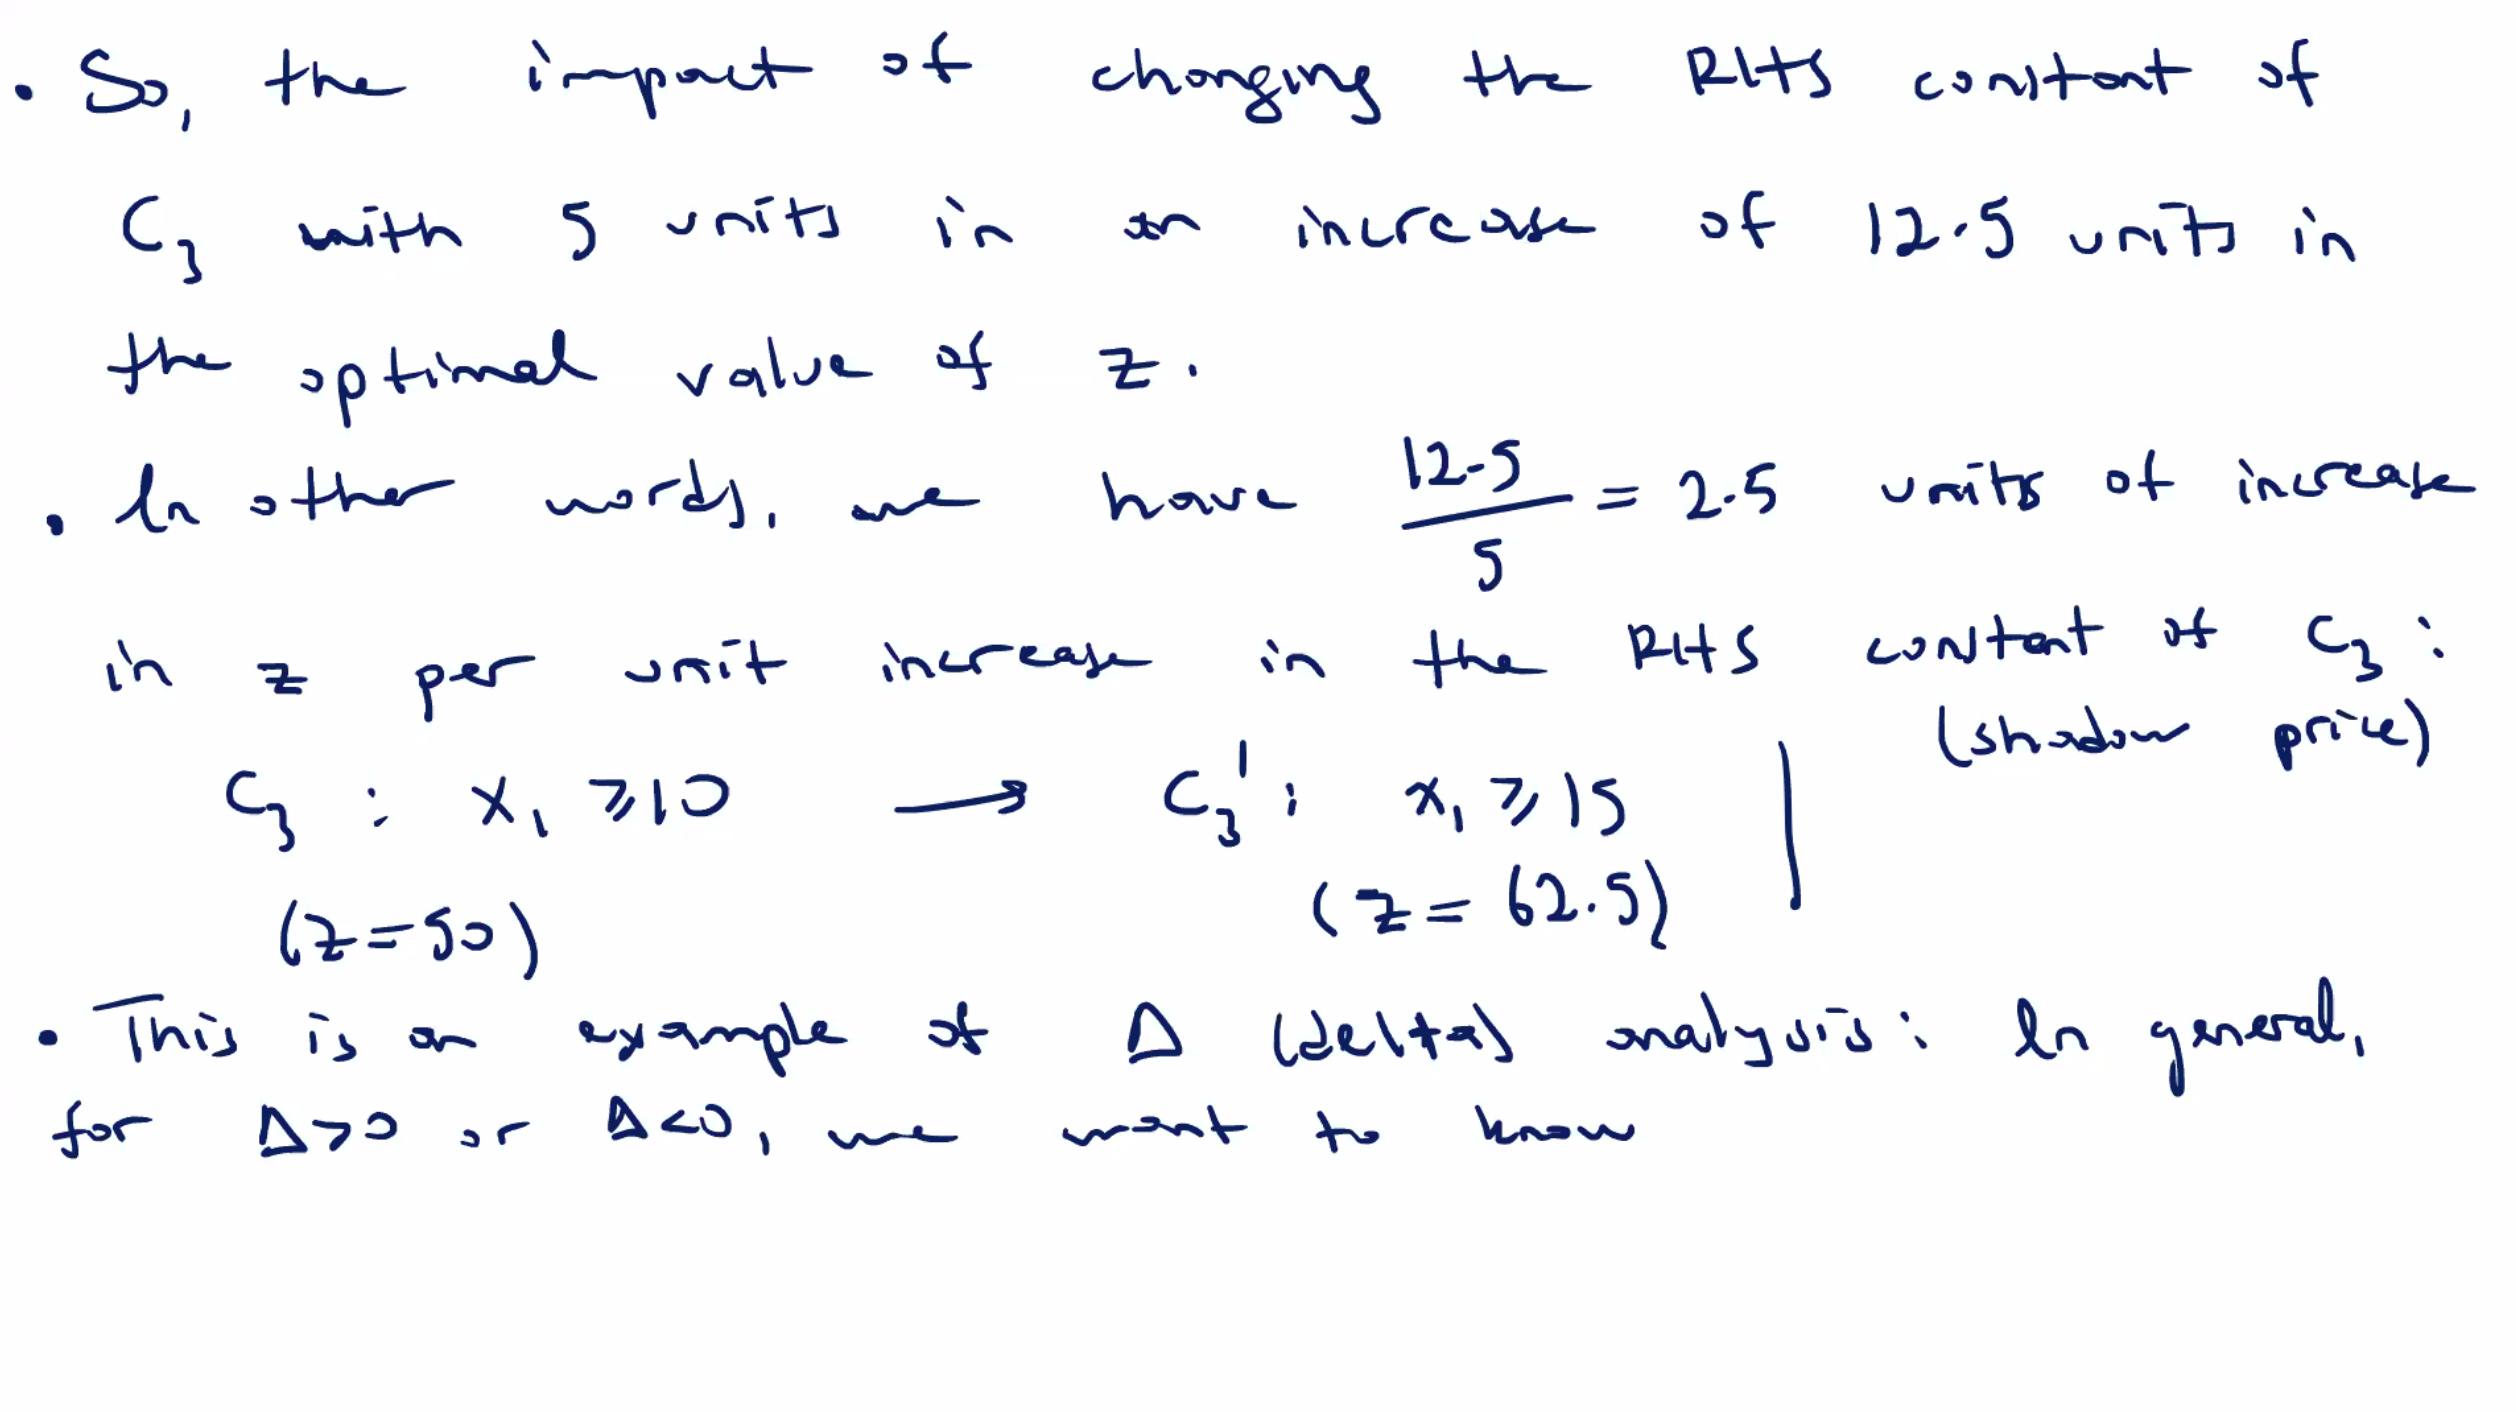 • So, the impact of changing the RHS constant of
C₃ with 5 units in an increase of 12.5 units in
the optimal value of z.
• In other words, we have 12.5/5 = 2.5 units of increase
in z per unit increase in the RHS constant of C₃ :
(shadow price)
C₃ : x₁ ≥ 10 → C₃' : x₁ ≥ 15 |
(z = 50) (z = 62.5)
• This is an example of Δ (delta) analysis: In general,
for Δ>0 or Δ<0, we want to know